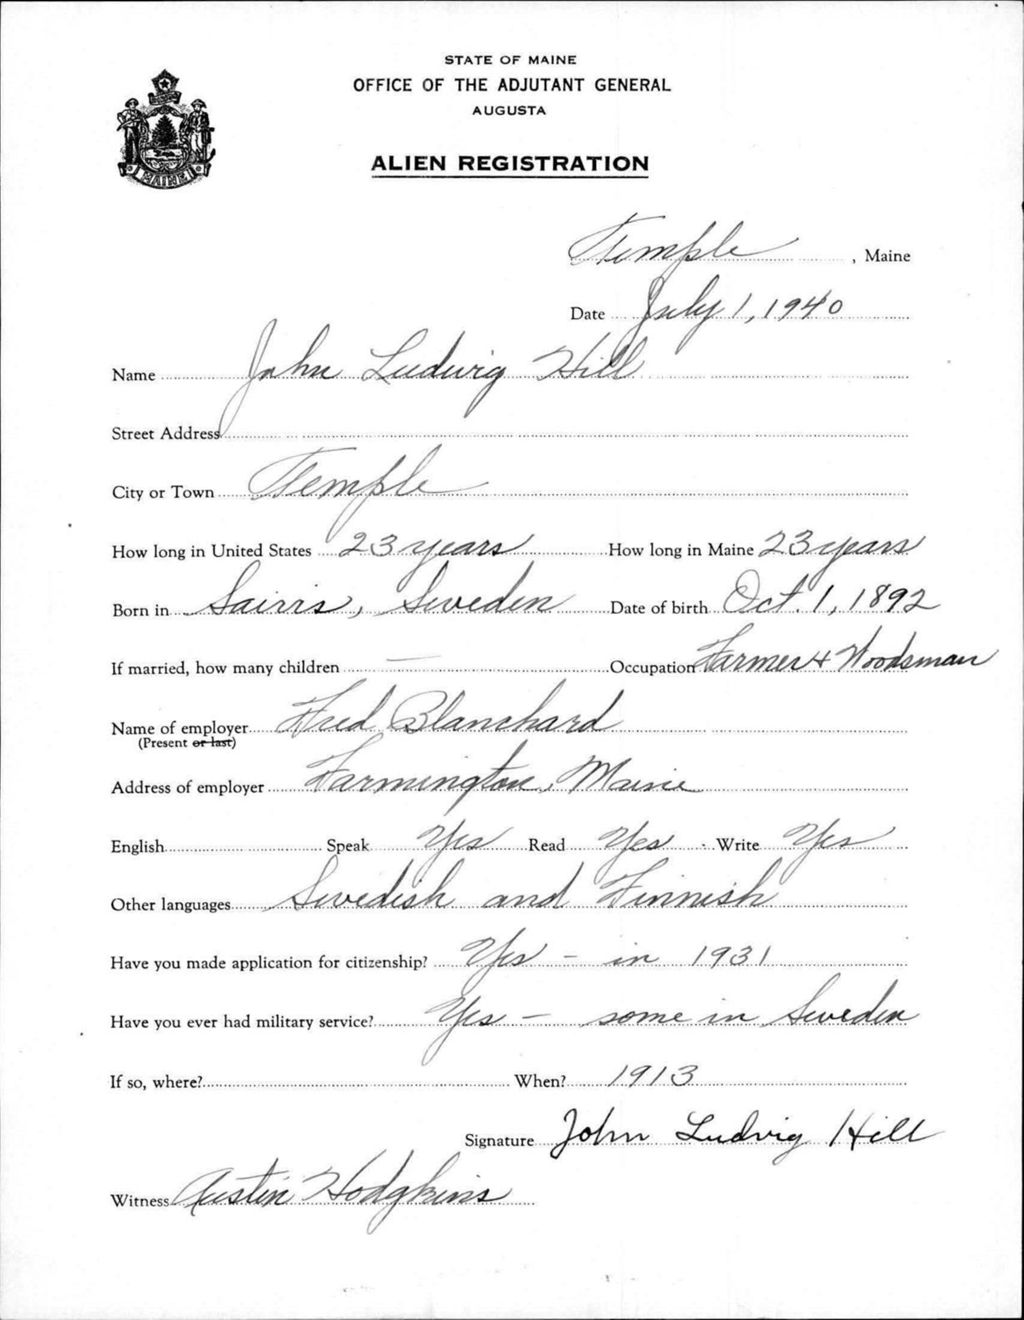 STATE OF MAINE
OFFICE OF THE ADJUTANT GENERAL
AUGUSTA
ALIEN REGISTRATION
MAINE
Temple, Maine
Date July 1, 1940
Name John Ludwig Hill
Street Address
City or Town Temple
How long in United States 23 years How long in Maine 23 years
Born in Sairis, Sweden Date of birth Oct. 1, 1892
If married, how many children — Occupation Farmer & Woodsman
Name of employer Fred Blanchard
(Present or last)
Address of employer Farmington, Maine
English Speak Yes Read Yes Write Yes
Other languages Swedish and Finnish
Have you made application for citizenship? Yes - in 1931
Have you ever had military service? Yes - some in Sweden
If so, where? When? 1913
Signature John Ludvig Hill
Witness Austin Hodgkins